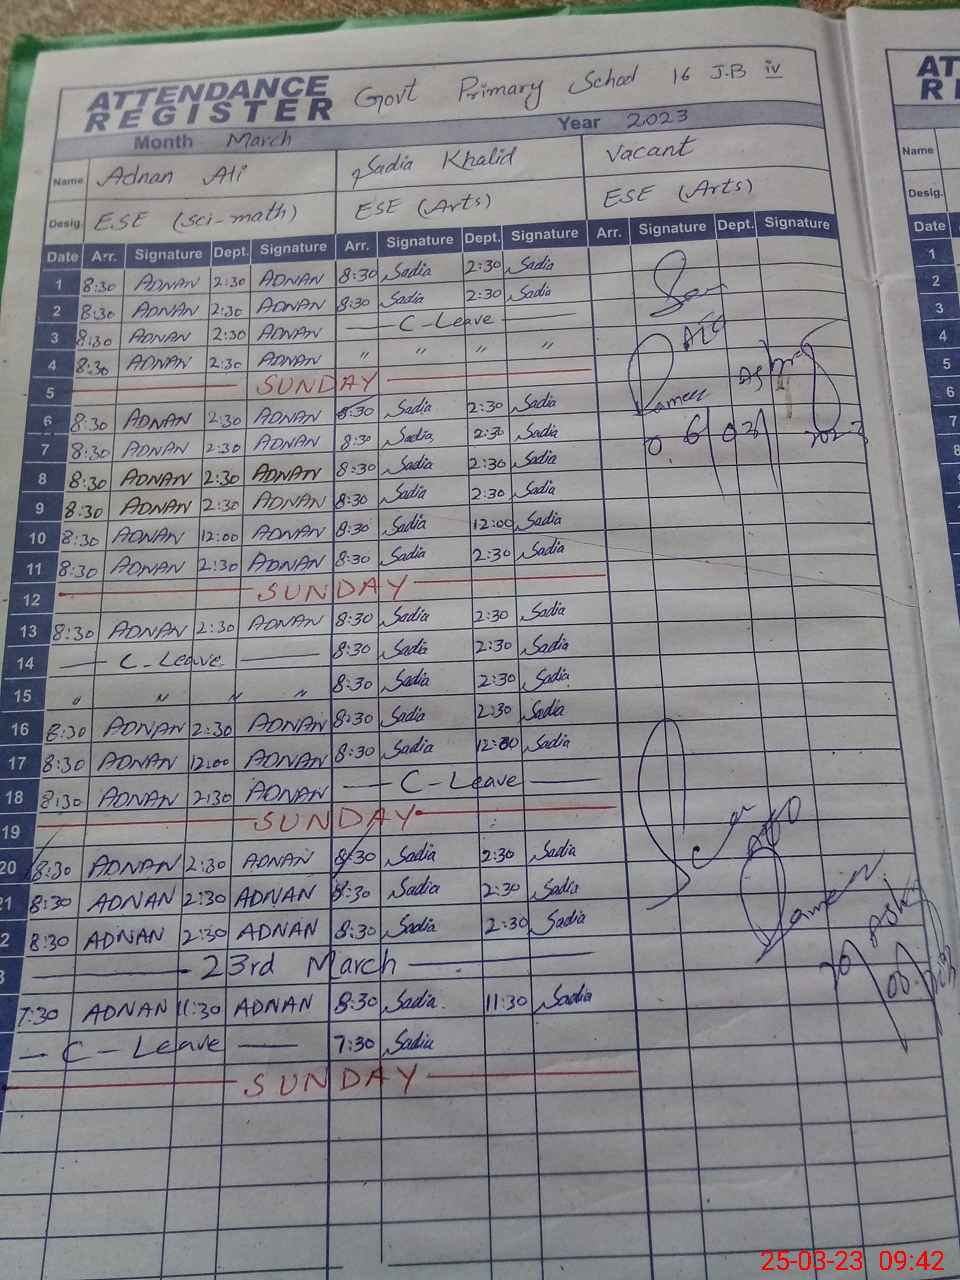 ATTENDANCE REGISTER Govt Primary School 16 J.B iv
Month March Year 2023
Name Adnan Ali Sadia Khalid Vacant
Desig. E.SE (Sci-math) ESE (Arts) ESE (Arts)
Date Arr. Signature Dept. Signature Arr. Signature Dept. Signature Arr. Signature Dept. Signature
1 8:30 ADNAN 2:30 ADNAN 8:30 Sadia 2:30 Sadia
2 8:30 ADNAN 2:30 ADNAN 8:30 Sadia 2:30 Sadia
3 8:30 ADNAN 2:30 ADNAN C-Leave
4 8:30 ADNAN 2:30 ADNAN " " " "
5 SUNDAY
6 8:30 ADNAN 2:30 ADNAN 8:30 Sadia 2:30 Sadia
7 8:30 ADNAN 2:30 ADNAN 8:30 Sadia 2:30 Sadia
8 8:30 ADNAN 2:30 ADNAN 8:30 Sadia 2:30 Sadia
9 8:30 ADNAN 2:30 ADNAN 8:30 Sadia 2:30 Sadia
10 8:30 ADNAN 12:00 ADNAN 8:30 Sadia 12:00 Sadia
11 8:30 ADNAN 2:30 ADNAN 8:30 Sadia 2:30 Sadia
12 SUNDAY
13 8:30 ADNAN 2:30 ADNAN 8:30 Sadia 2:30 Sadia
14 C-Leave 8:30 Sadia 2:30 Sadia
15 " " " " 8:30 Sadia 2:30 Sadia
16 8:30 ADNAN 2:30 ADNAN 8:30 Sadia 2:30 Sadia
17 8:30 ADNAN 12:00 ADNAN 8:30 Sadia 12:00 Sadia
18 8:30 ADNAN 2:30 ADNAN C-Leave
19 SUNDAY
20 8:30 ADNAN 2:30 ADNAN 8:30 Sadia 2:30 Sadia
21 8:30 ADNAN 2:30 ADNAN 8:30 Sadia 2:30 Sadia
2 8:30 ADNAN 2:30 ADNAN 8:30 Sadia 2:30 Sadia
3 23rd March
7:30 ADNAN 11:30 ADNAN 8:30 Sadia 11:30 Sadia
C-Leave 7:30 Sadia
SUNDAY
06/03/2023
AT
RE
Name
Desig.
Date
1
2
3
4
5
6
7
8
25-03-23 09:42